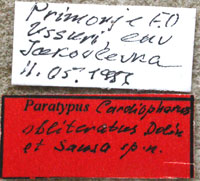 Primorje FD
Ussuri env
Jakovlevka
11.05.1983
Paratypus Cardiophorus
obliteratus Dolin
et Sausa sp.n.